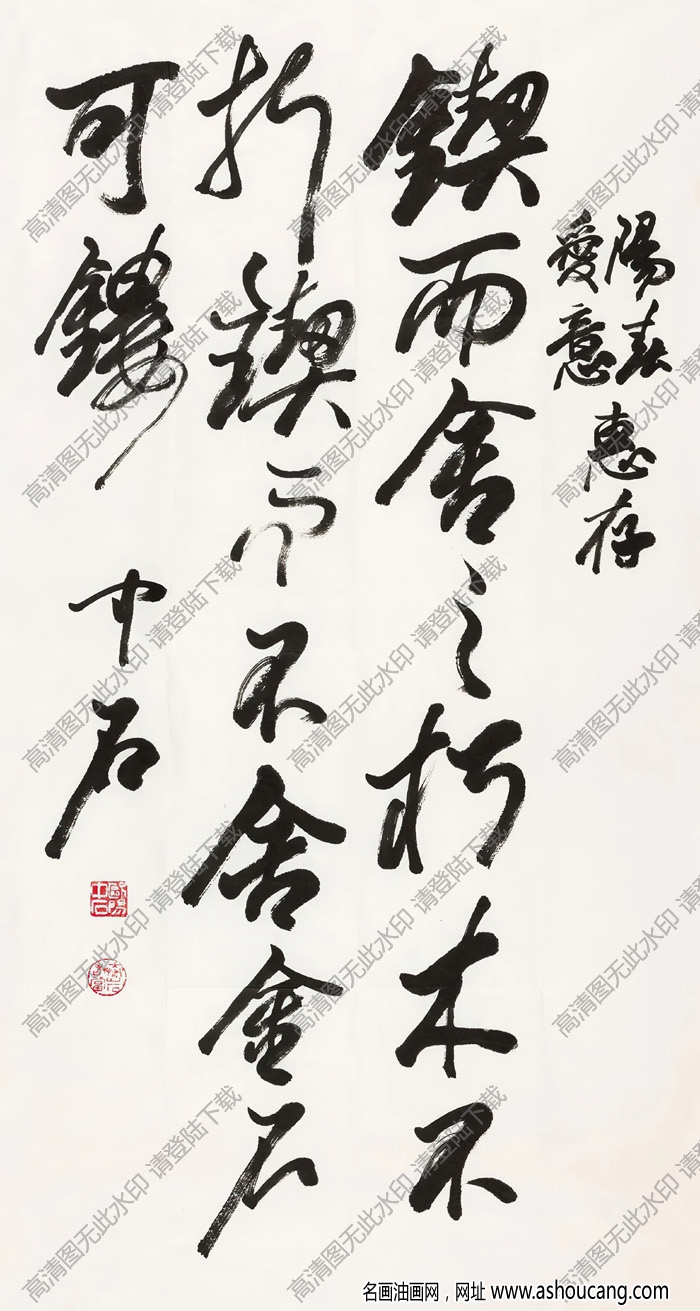 陽春
愛意
惠存
鍥而舍之朽木不
折鍥而不舍金石
可鏤
中石
歐陽中石
高清图无此水印 请登陆下载
名画油画网，网址 www.ashoucang.com